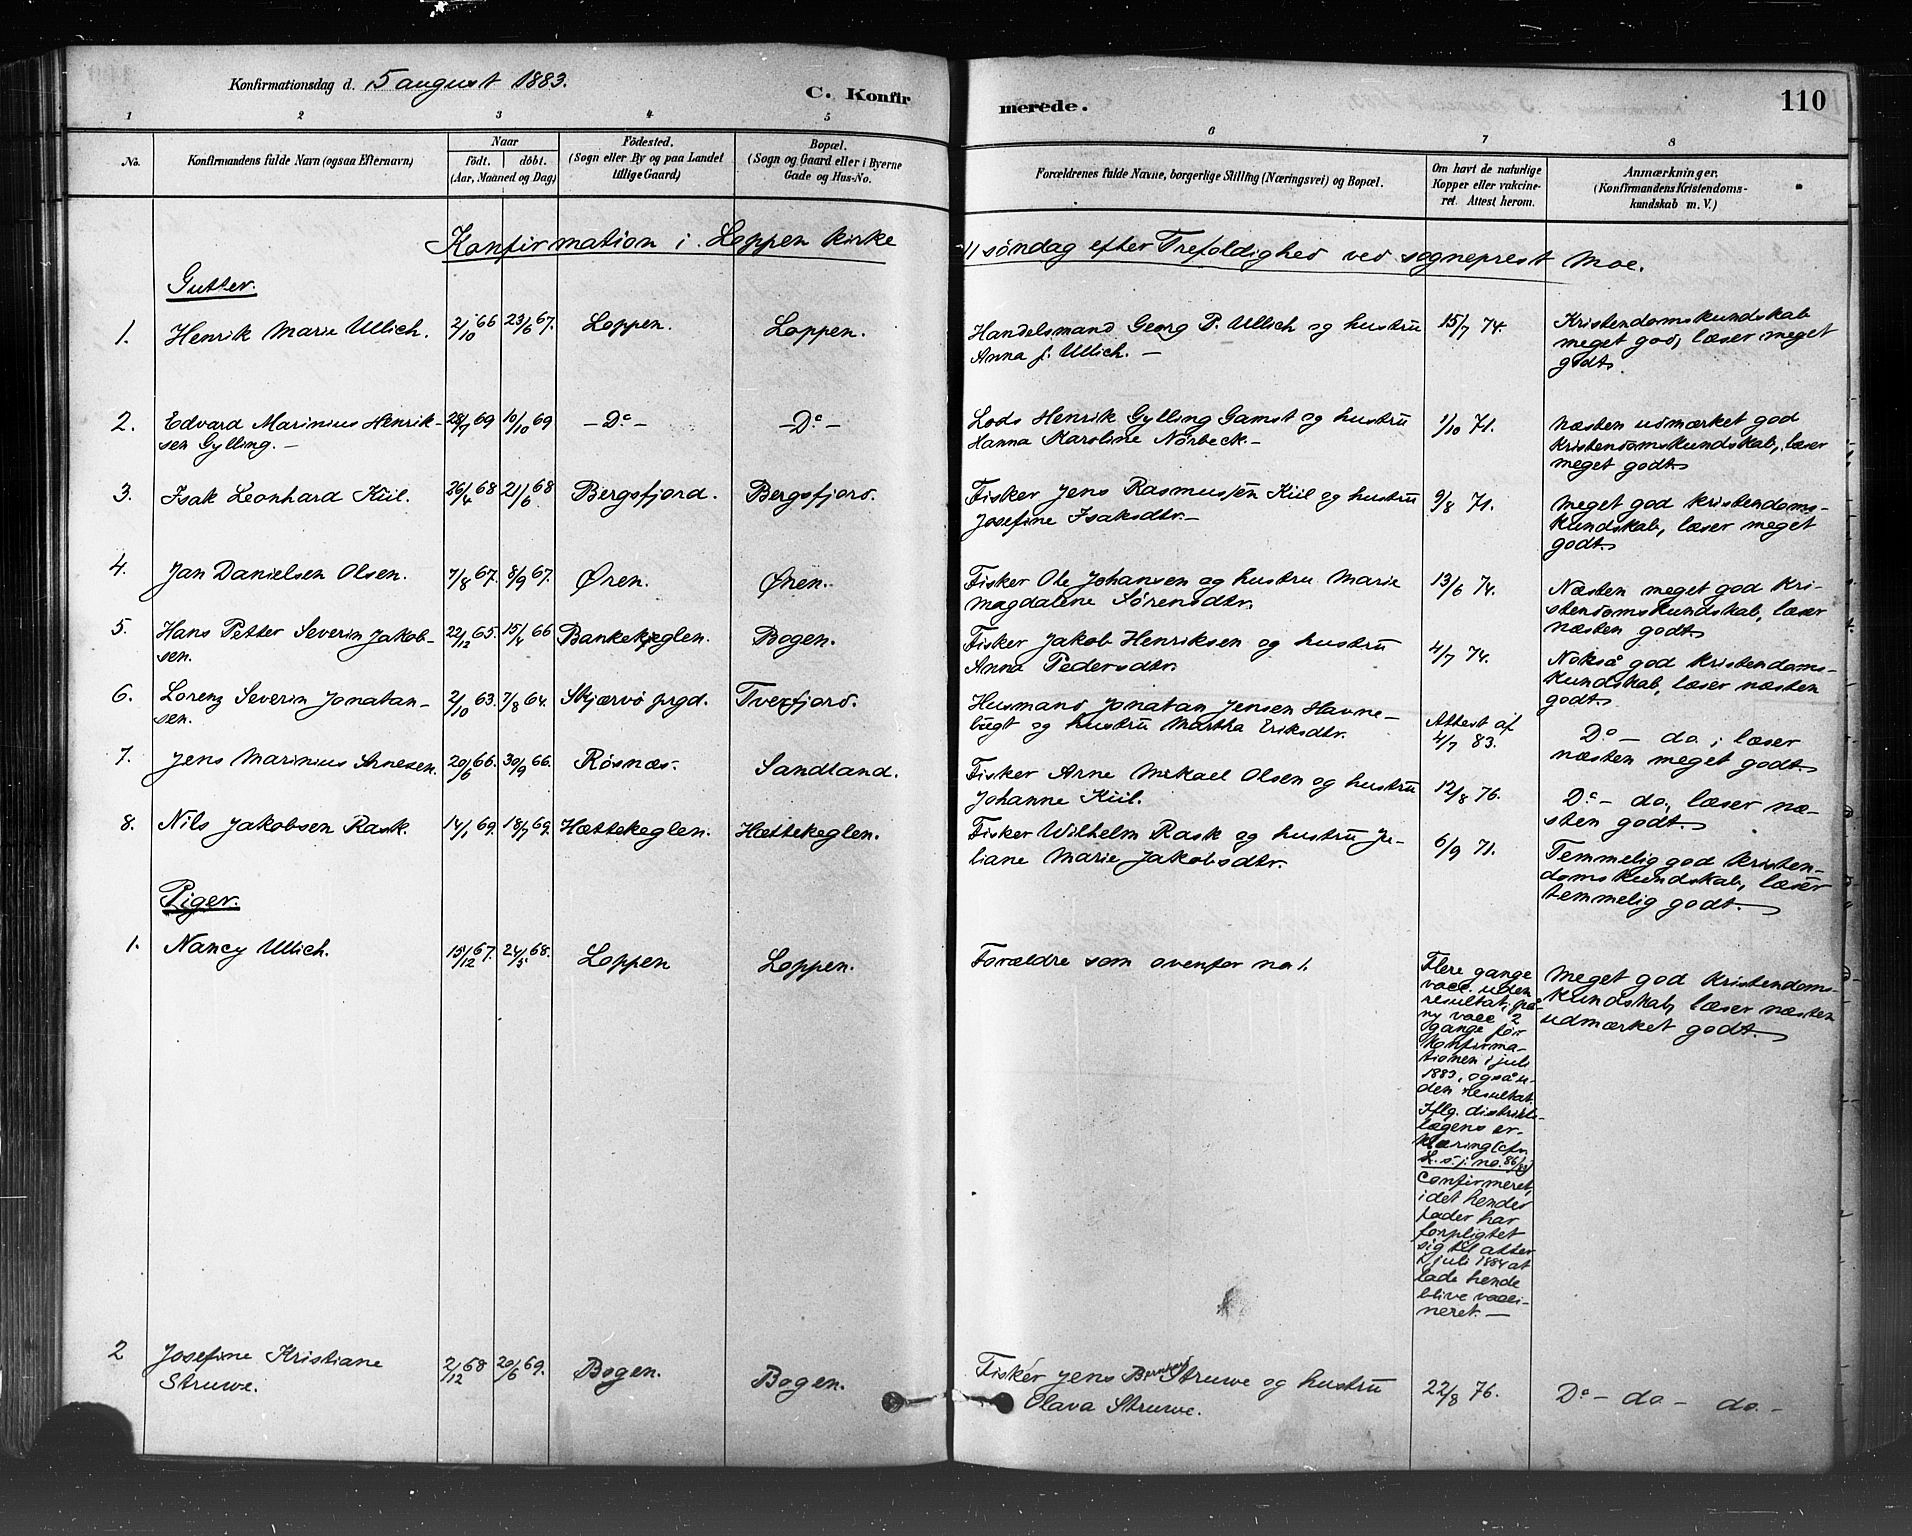 Konfirmationsdag d. 5 august 1883.
C. Konfirmerede.
110
1 2 3 4 5 6 7 8
No.
Konfirmandens fulde Navn (ogsaa Efternavn)
Naar
födt. döbt.
(Aar, Maaned og Dag)
Födested.
(Sogn eller By og paa Landet
tillige Gaard)
Bopæl.
(Sogn og Gaard eller i Byerne
Gade og Hus-No.
Forældrenes fulde Navne, borgerlige Stilling (Næringsvei) og Bopæl.
Om havt de naturlige
Kopper eller vakcine-
ret. Attest herom.
Anmærkninger.
(Konfirmandens Kristendoms-
kundskab m. V.)
Konfirmation i Loppen kirke 11 söndag efter Trefoldighed ved sogneprest Moe.
Gutter.
1. Henrik Marie Ullich. 2/10 66 23/6 67. Loppen. Loppen. Handelsmand Georg P. Ullich og hustru 15/7 74. Kristendomskundskab
Anna J. Ullich. — meget god, læser meget
godt.
2. Edvard Marinius Henrik- 28/7 69 10/10 69 — Do — — Do — Lods Henrik Gylling Gamst og hustru 1/10 71. Næsten udmærket god
sen Gylling. — Hanna Karoline Norbeck — kristendomskundskab, læser
meget godt
3. Isak Leonhard Kiil. 26/4 68 21/6 68 Bergsfjord. Bergsfjord. Fisker Jens Rasmussen Kiil og hustru 9/8 71. Meget god kristendoms-
Josefine Isaksdtr. — kundskab, læser meget
godt.
4. Jan Danielsen Olsen. 7/8 67. 8/9 67. Ören. Ören. Fisker Ole Johansen og hustru Marie 13/6 74. Næsten meget god kri-
Magdalene Sörensdtr. stendomskundskab, læser
næsten godt.
5. Hans Petter Severin Jakob- 22/12 65. 15/4 66 Bankekeglen. Bogen. Fisker Jakob Henriksen og hustru 4/7 74. Nokså god kristendoms-
sen. Anna Pedersdtr. kundskab, læser næsten
godt.
6. Lorenz Severin Jonatan- 2/10 63. 7/8 64. Skjærvö prgd. Tverfjord. Husmand Jonatan Jensen Havne- Attest af
sen. bugt og hustru Martha Eriksdtr. 4/7 83. Do — do; læser
næsten meget godt.
7. Jens Marinius Arnesen. 20/6 66. 30/9 66. Rösnæs. Sandland. Fisker Arne Mikael Olsen og hustru 12/8 76. Do — do, læser næ-
Johanne Kiil. sten godt.
8. Nils Jakobsen Rask. 14/1 69. 18/7 69. Hættekeglen. Hættekeglen. Fisker Wilhelm Rask og hustru Ju- 6/9 71. Temmelig god kristen-
liane Marie Jakobsdtr. domskundskab, læser
temmelig godt.
Piger.
1. Nancy Ullich. 15/12 67. 24/5 68. Loppen Loppen. Forældre som ovenfor no 1.
Flere gange
vacc. uden
resultat; på
ny vacc 2
gange för
konfirma-
tionen i juli
1883, også u-
den resultat.
Iflg. distrikts-
lægens er-
klæring (cfr
K. s. j. no. 86/83)
confirmeret,
idet hendes
fader har
forpligtet
sig til atter
i juli 1884 at
lade hende
blive vacci-
neret. —
Meget god kristendoms-
kundskab, læser næsten
udmærket godt.
2 Josefine Kristiane 2/12 68 20/6 69. Bogen. Bogen. Fisker Jens Struwe og hustru 22/8 76. Do — do — do. —
Struwe. Olava Struwe.